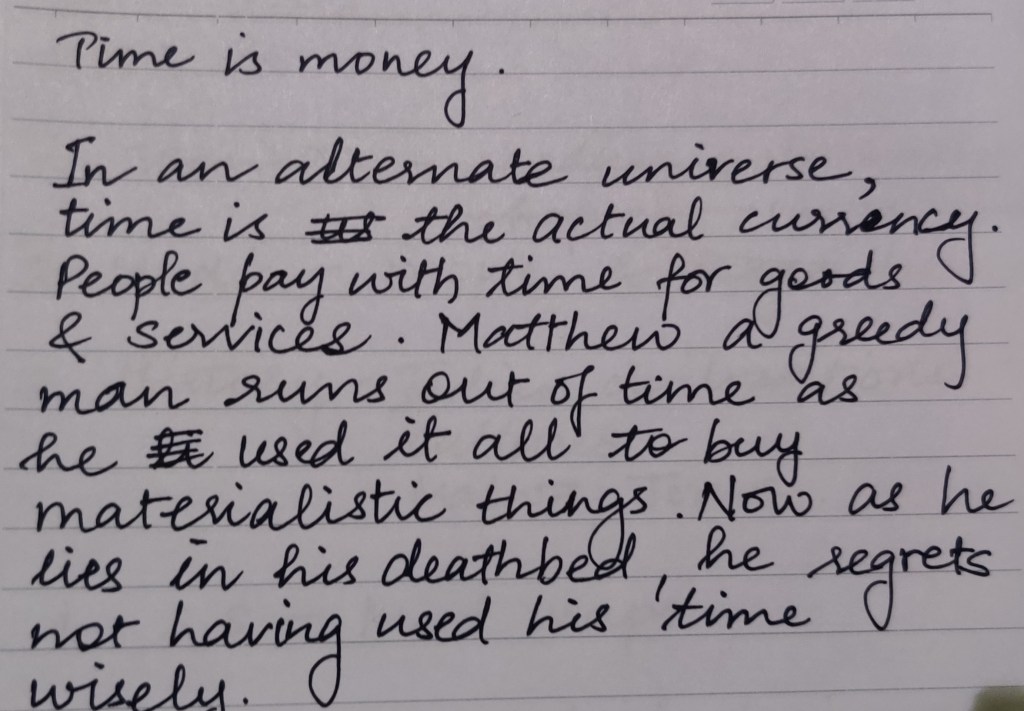 Time is money.
In an alternate universe,
time is the actual currency.
People pay with time for goods
& services. Matthew a greedy
man runs out of time as
he used it all to buy
materialistic things. Now as he
lies in his deathbed, he regrets
not having used his 'time
wisely.